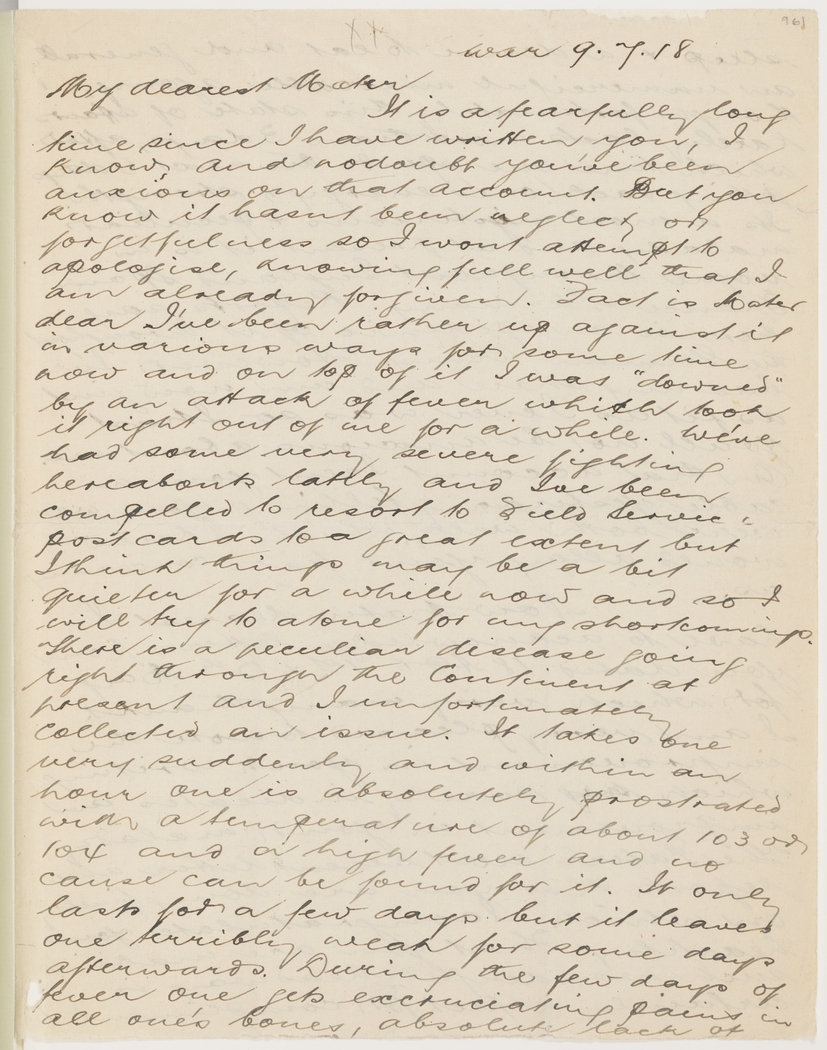 961
War 9.7.18
My dearest Mater
It is a fearfully long
time since I have written you, I
know, and nodoubt you've been
anxious on that account. But you
know it hasnt been neglect or
forgetfulness so I wont attempt to
apologise, knowing full well that I
am already forgiven. Fact is Mater
dear I've been rather up against it
in various ways for some time
now and on top of it I was "downed"
by an attack of fever which took
it right out of me for a while. We've
had some very severe fighting
hereabouts lately and I've been
compelled to resort to Field Service
postcards to a great extent but
I think things may be a bit
quieter for a while now and so I
will try to atone for any shortcomings.
There is a peculiar disease going
right through the Continent at
present and I unfortunately
collected an issue. It takes one
very suddenly and within an
hour one is absolutely prostrated
with a temperature of about 103 or
104 and a high fever and no
cause can be found for it. It only
lasts for a few days but it leaves
one terribly weak for some days
afterwards. During the few days of
fever one gets excruciating pains in
all one's bones, absolute lack of